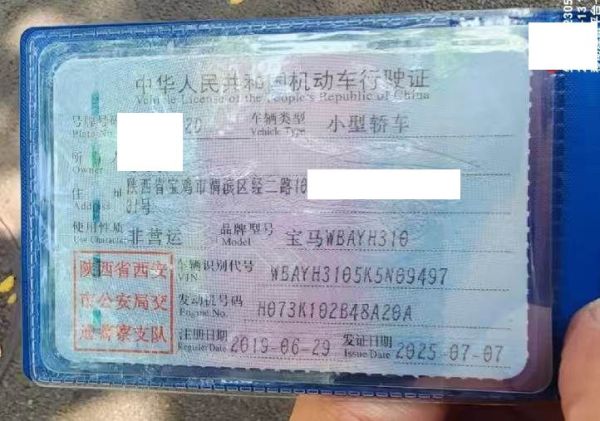 中华人民共和国机动车行驶证
Vehicle License of the People's Republic of China
号牌号码 2D 车辆类型 小型轿车
Plate No. Vehicle Type
所 人
Owner
住 址 陕西省宝鸡市渭滨区经二路10
Address 01号
使用性质 非营运 品牌型号 宝马WBAYH310
Use Character Model
陕西省西安
市公安局交
通警察支队
车辆识别代号 WBAYH3105K5N09497
VIN
发动机号码 H073K102B48A20A
Engine No.
注册日期 2019-06-29 发证日期 2025-07-07
Register Date Issue Date